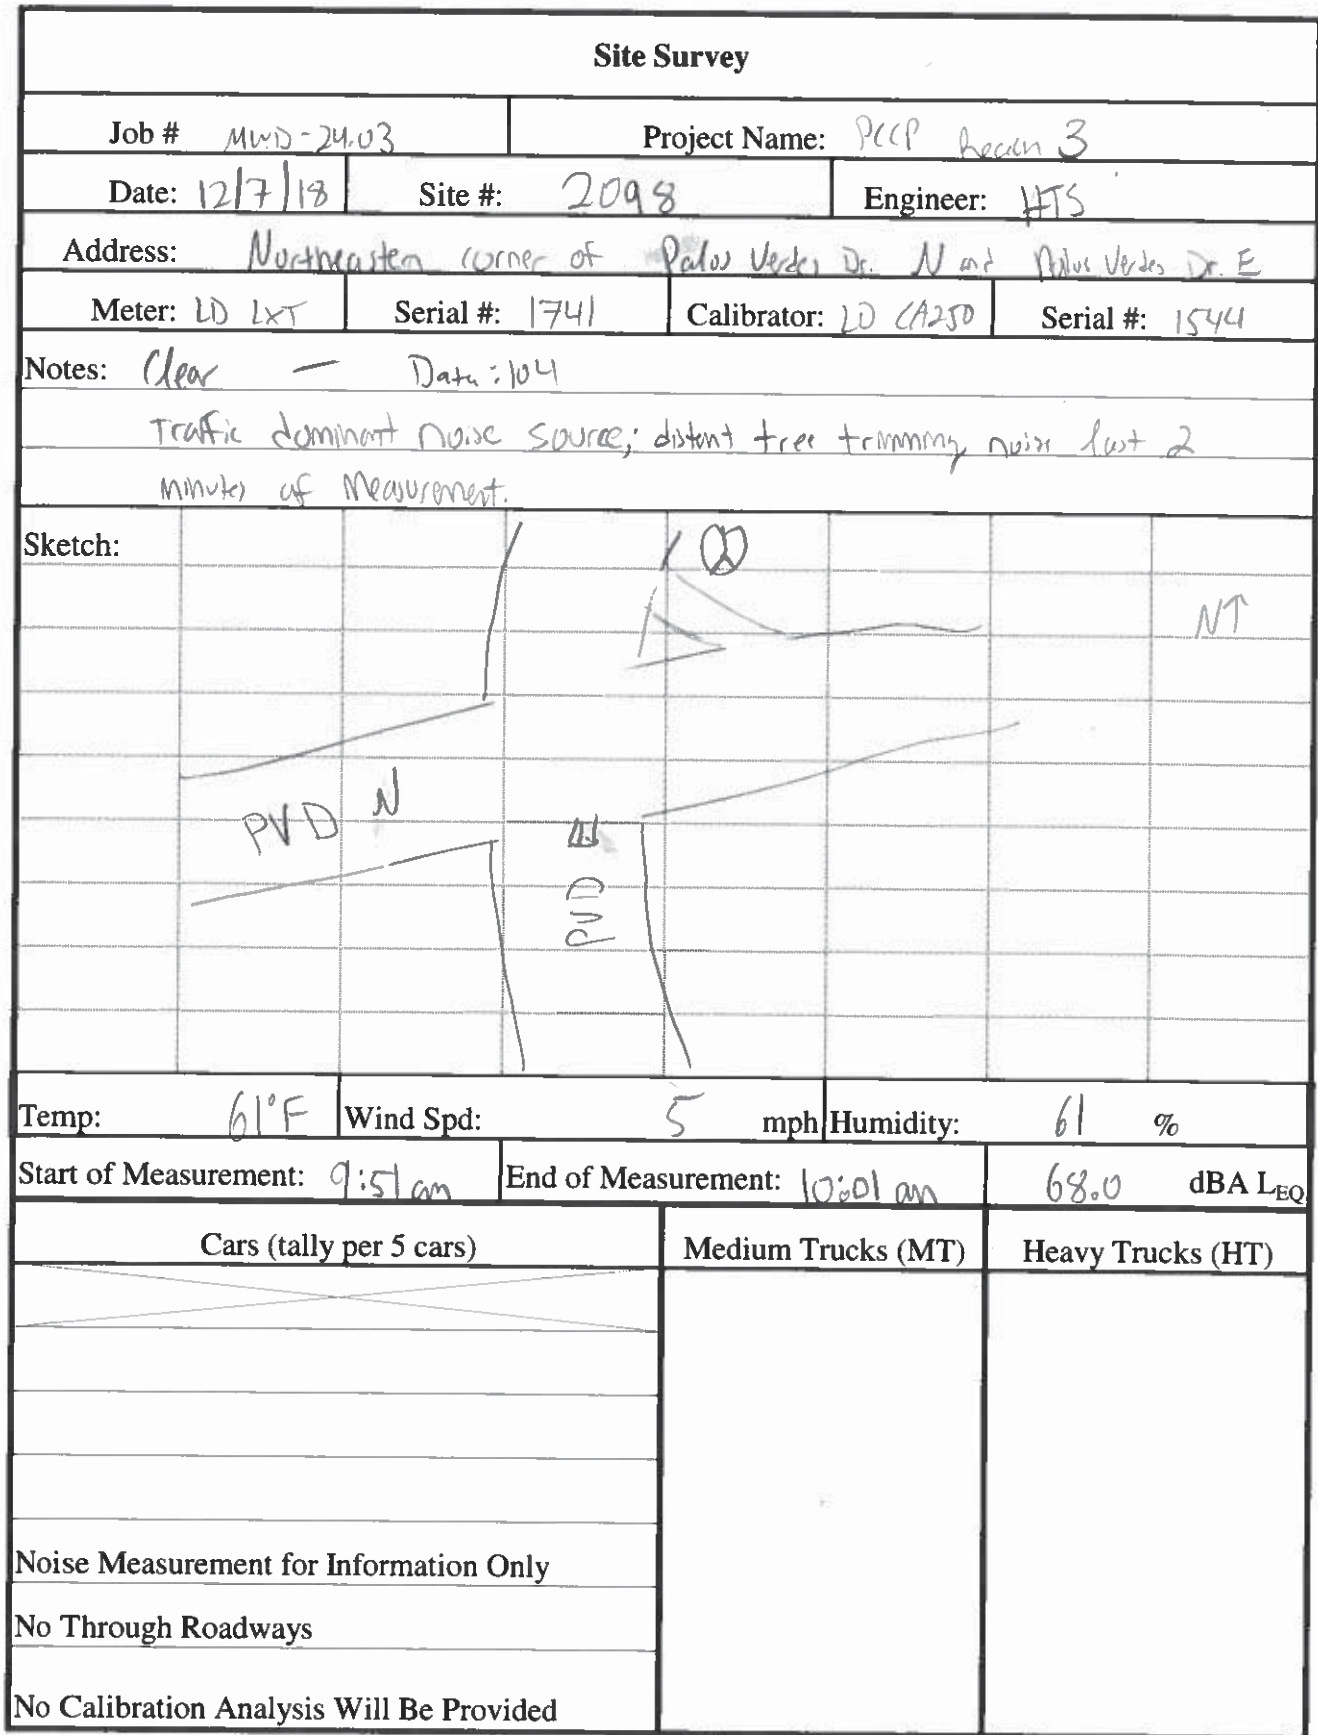 Site Survey
Job # MWD-24.03 Project Name: PCCP Reach 3
Date: 12/7/18 Site #: 2098 Engineer: HTS
Address: Northeastern corner of Palos Verdes Dr. N and Palos Verdes Dr. E
Meter: LD LXT Serial #: 1741 Calibrator: LD CA250 Serial #: 1544
Notes: Clear — Data: 104
Traffic dominant noise source; distent tree trimming noise last 2
minutes of Measurement.
Sketch:
N↑
PVD N
PVD E
Temp: 61°F Wind Spd: 5 mph Humidity: 61 %
Start of Measurement: 9:51 am End of Measurement: 10:01 am 68.0 dBA LEQ
Cars (tally per 5 cars) Medium Trucks (MT) Heavy Trucks (HT)
Noise Measurement for Information Only
No Through Roadways
No Calibration Analysis Will Be Provided